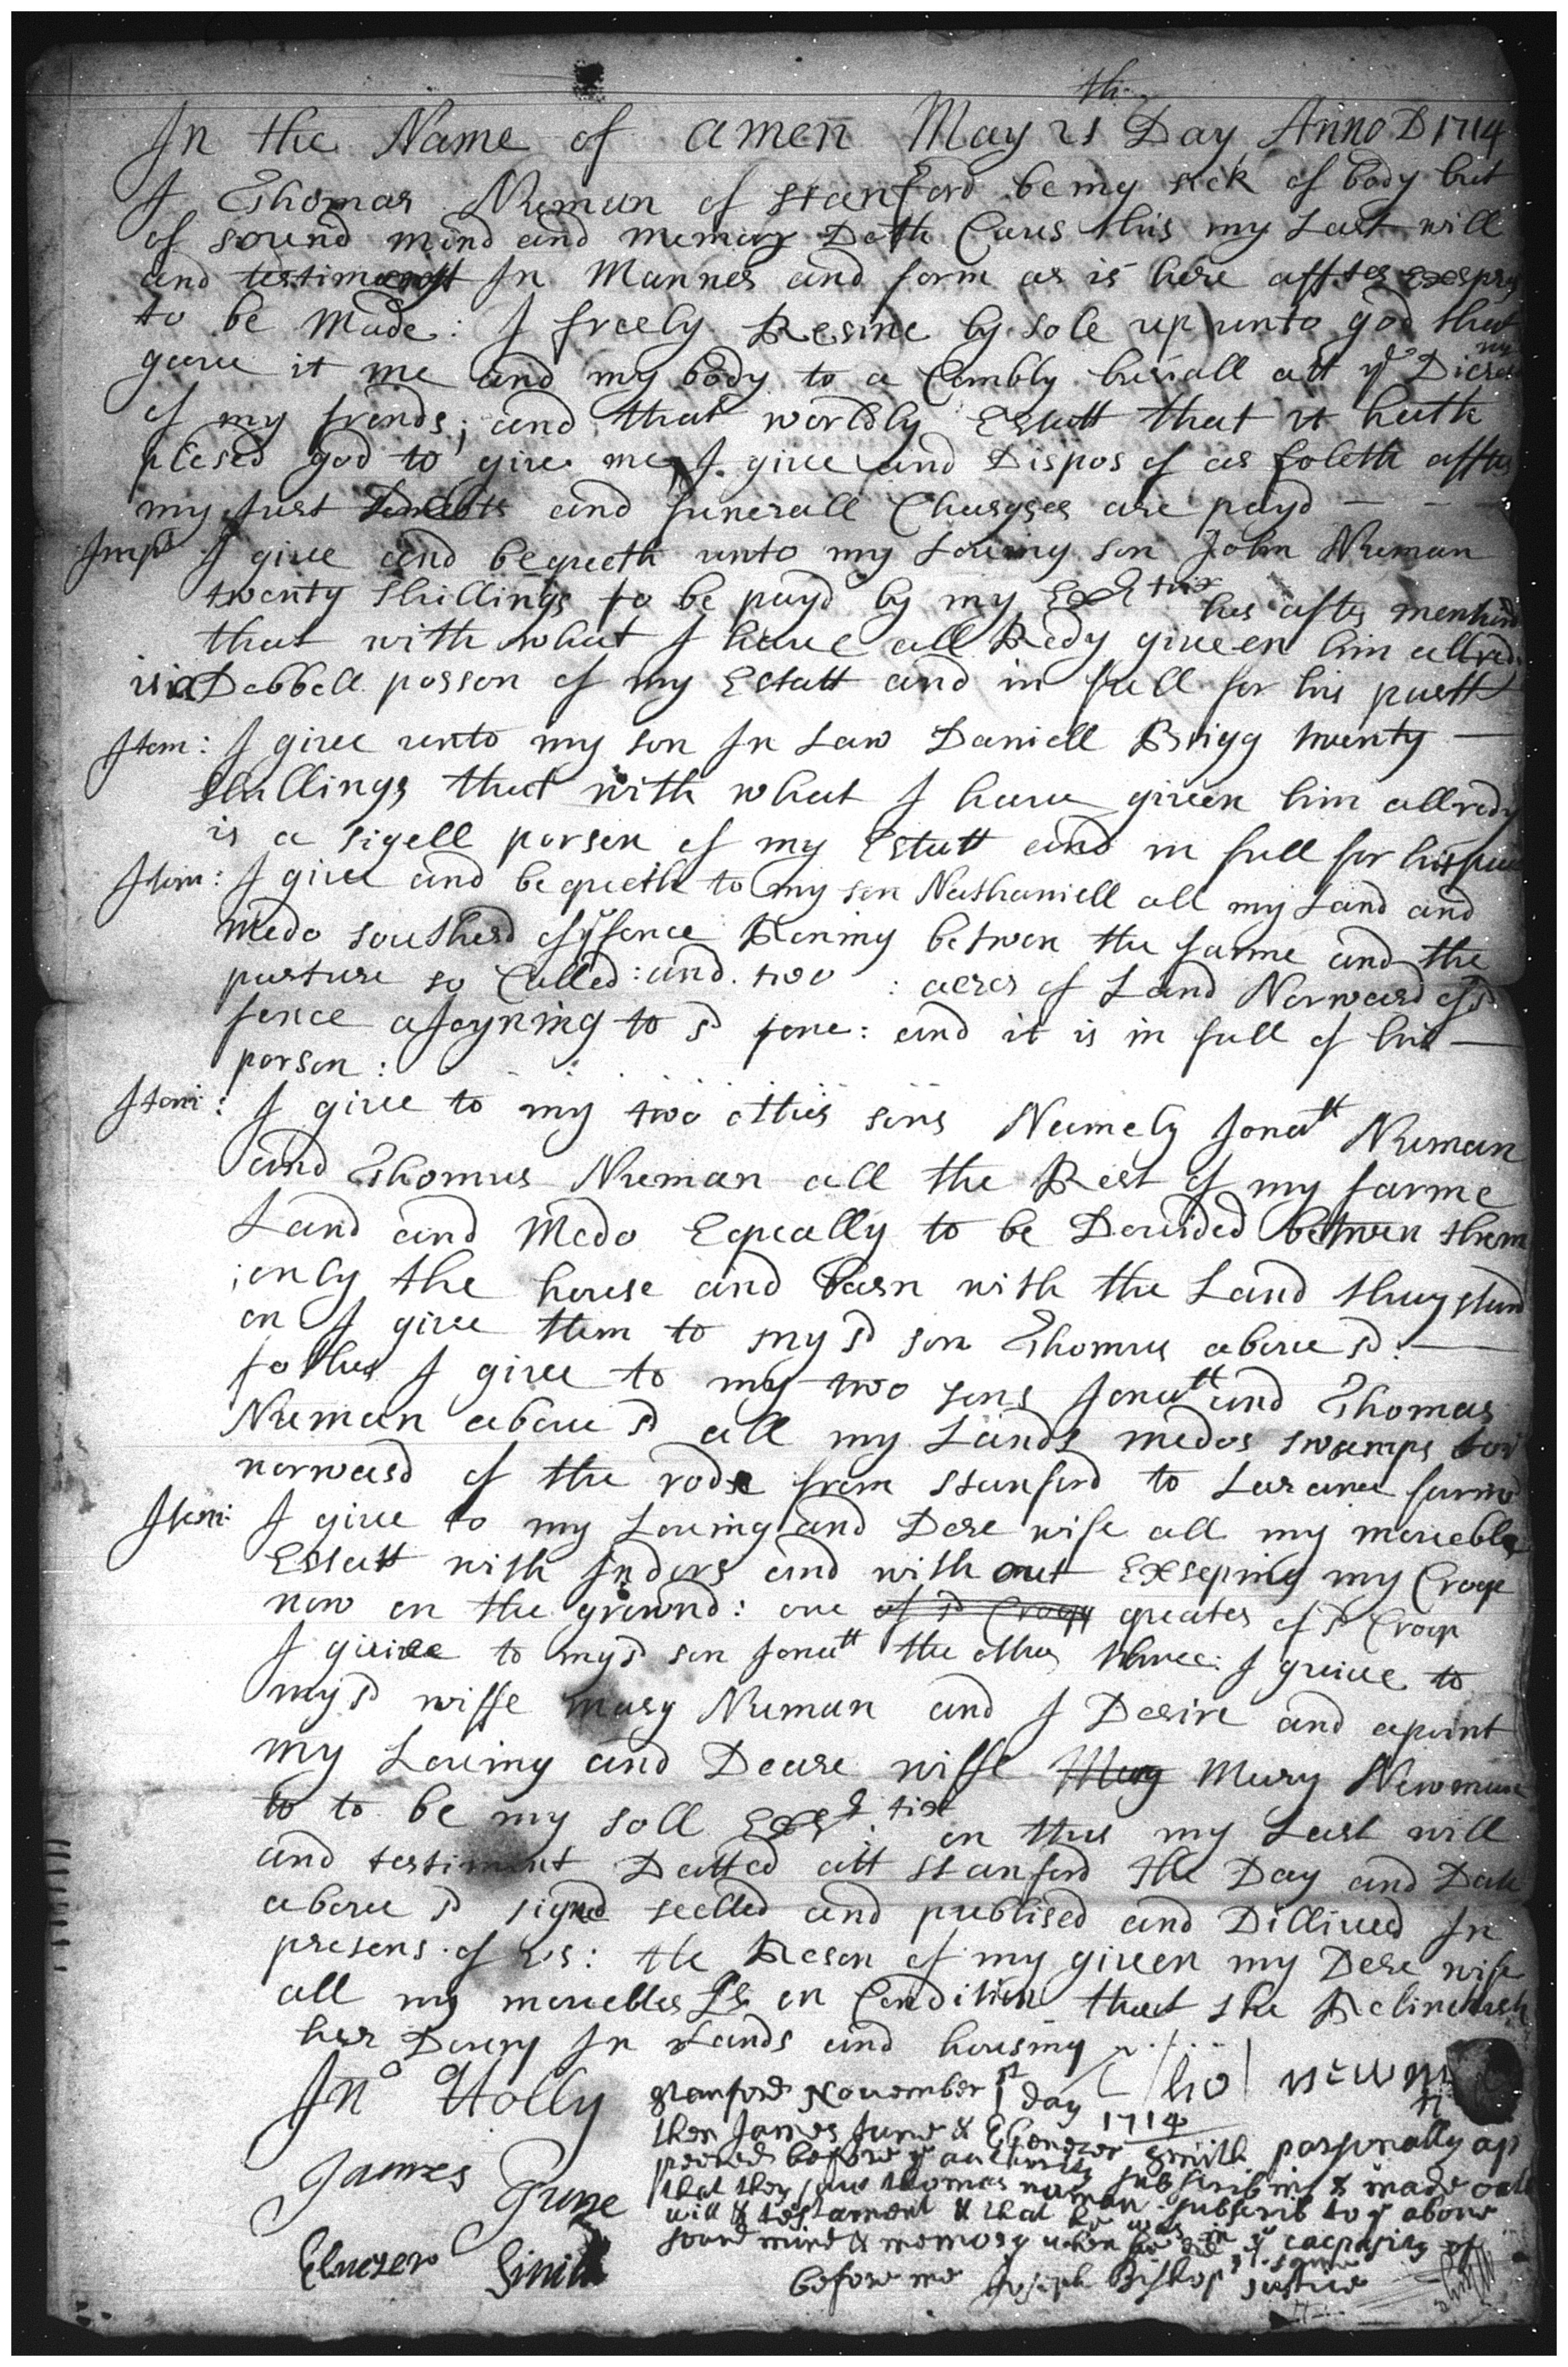 In the Name of amen May 21 th Day Anno D 1714
I Thomas Numan of stanford be my sick of body but
of sound mind and memory Doth Caus this my Last will
and testiment In Manner and form as is here affter Exspres
to be Made: I freely Resine by sole up unto god that
gave it me and my body to a Combly buriall att ye Discre
of my frends; and that worldly Estatt that it hath
plesed god to give me, I give and Dispos of as foleth affter
my Just Debts and funerall Charyses are payd — — —
Imps I give and bequeth unto my Loving son John Numan
twenty shillings to be payd by my Extrix her after mentind
that with what I have all Redy giveen him allredi
is a Dobbell porson of my Estatt and in full for his partt
Item: I give unto my son In Law Daniell Brigg twenty —
shillings that with what I have given him allredy
is a sigell porson of my Estatt and in full for his
Item: I give and bequeth to my son Nathaniell all my Land and
medo southerd of ye fence Roning betwen the farme and the
pasture so Called: and two : acres of Land Norward of sd
fence ajoyning to sd fenc: and it is in full of his —
porson:
Item: I give to my two other sons Namely Jonatt Numan
and Thomas Numan all the Rest of my farme
Land and Medo Equally to be Devided betwen them
;only the house and barn with the Land they stand
on I give them to my sd son Thomas above sd: —
father I give to my two sons Jonatt and Thomas
Numan above sd all my Lands medos swamps
norward of the rode from stanford to farme
Item: I give to my Loving and Dere wife all my moveble
Estatt with Indors and with out Exseping my Crope
now on the ground: one of sd Crop quater of sd Crop
I give to my sd son Jonatt the other three: I give to
my sd wiffe mary Numan and I Desire and apoint
my Loving and Deare wiffe Mary Mary Newman
to to be my soll Extrix on this my Last will
and testiment Datted att stanford the Day and Date
above sd signed seelled and publised and Dillived In
presens of us: the Reson of my giveen my Dere wife
all my moveebles Is on Condition that she Relinckuesh
her Dowry In Lands and housing
Jno Holly
tho newman
James June
Ebnezer Smith
stanford November 1st day 1714
then James June & Ebenezer smith parsonally ap
peered before ye authority & made oath
that they saw thomas numan subscrib to ye above
will & testament & that he was in ye capasity of
sound mind & memory when he did ye same
before me Joseph Bishop Justice